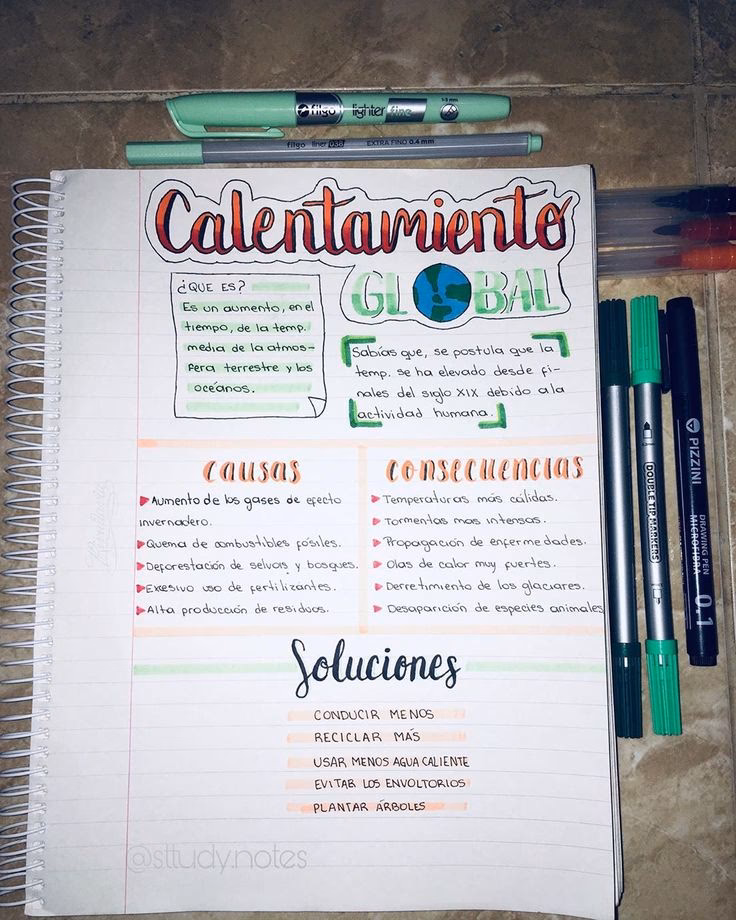 filgo lighter fine 1-3 mm
filgo liner 038 EXTRA FINO 0.4 mm
Calentamiento
GLOBAL
¿QUE ES?
Es un aumento, en el
tiempo, de la temp.
media de la atmos-
fera terrestre y los
océanos.
Sabías que, se postula que la
temp. se ha elevado desde fi-
nales del siglo XIX debido a la
actividad humana.
CAUSAS
Aumento de los gases de efecto
invernadero.
Quema de combustibles fósiles.
Deforestación de selvas y bosques.
Excesivo uso de fertilizantes.
Alta producción de residuos.
CONSECUENCIAS
Temperaturas más cálidas.
Tormentas mas intensas.
Propagación de enfermedades.
Olas de calor muy fuertes.
Derretimiento de los glaciares.
Desaparición de especies animales
Soluciones
CONDUCIR MENOS
RECICLAR MÁS
USAR MENOS AGUA CALIENTE
EVITAR LOS ENVOLTORIOS
PLANTAR ÁRBOLES
@sttudy.notes
DOUBLE TIP MARKERS
PIZZINI
DRAWING PEN
MICROFIBRA
0.1